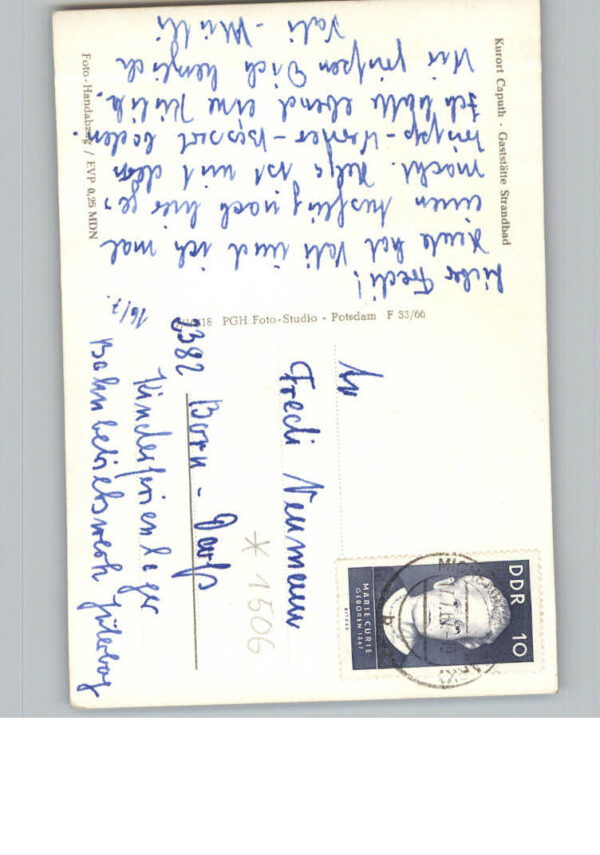 Kurort Caputh · Gaststätte Strandbad
Lieber Fredi!
Heute hat Vati und ich mal
einen Ausflug nach hier ge-
macht. Helga ist mit dem
baden.
Ich wollte ebend eine
Wir grüßen Dich herzlich
Vati - Mutti
Foto-Handabzug / EVP 0,25 MDN
16/7.
18 PGH Foto-Studio - Potsdam F 33/66
DDR 10
MARIE CURIE
GEBOREN 1867
An
Fredi Neumann
* 1506
2382 Born - Darß
Kinderferienlager
Bahnbetriebswerk Jüterbog